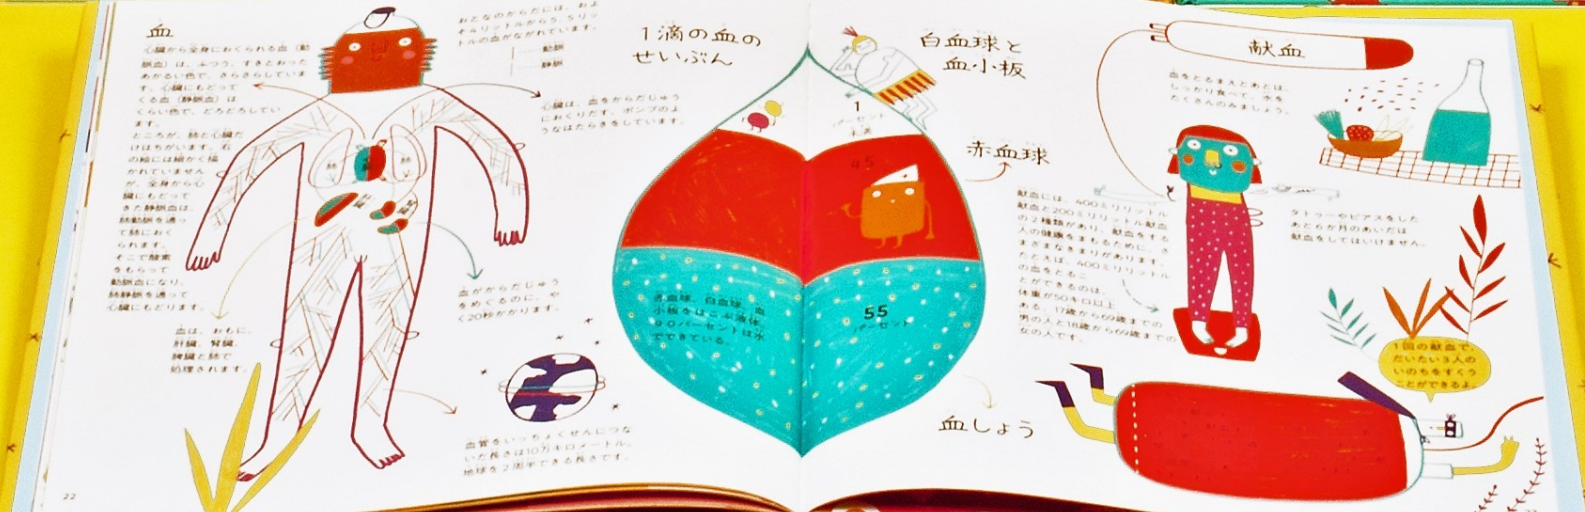 血
心臓から全身におくられる血（動
脈血）は、ふつう、すきとおった
あかるい色で、さらさらしていま
す。心臓にもどって
くる血（静脈血）は
くらい色で、どろどろしてい
ます。
ところが、肺と心臓だ
けはちがいます。右
の絵には細かく描
かれていません
が、全身から心
臓にもどって
きた静脈血は、
肺動脈を通っ
て肺におく
られます。
そこで酸素
をもらって
動脈血になり、
肺静脈を通って
心臓にもどります。
血は、おもに、
肝臓、腎臓、
脾臓と肺で
処理されます。
22
おとなのからだには、およ
そ4リットルから5.5リッ
トルの血がながれています。
動脈
静脈
肺
肺
心臓は、血をからだじゅう
におくりだす、ポンプのよ
うなはたらきをしています。
血がからだじゅう
をめぐるのに、や
く20秒かかります。
血管をいっちょくせんにつな
いだ長さは10万キロメートル。
地球を2周半できる長さです。
1滴の血の
せいぶん
白血球と
血小板
1
パーセント
未満
45
赤血球
赤血球、白血球、血
小板をはこぶ液体。
90パーセントは水
でできている。
55
パーセント
血しょう
献血
血をとるまえとあとは、
しっかり食べて、水を
たくさんのみましょう。
献血には、400ミリリットル
献血と200ミリリットル献血
の2種類があり、献血をする
人の健康をまもるために、さ
まざまなきまりがあります。
たとえば、400ミリリットル
の血をとるこ
とができるのは、
体重が50キロ以上
ある、17歳から69歳までの
男の人と18歳から69歳までの
女の人です。
タトゥーやピアスをした
あと6か月のあいだは
献血をしてはいけません。
1回の献血で、
だいたい3人の
いのちをすくう
ことができるよ。